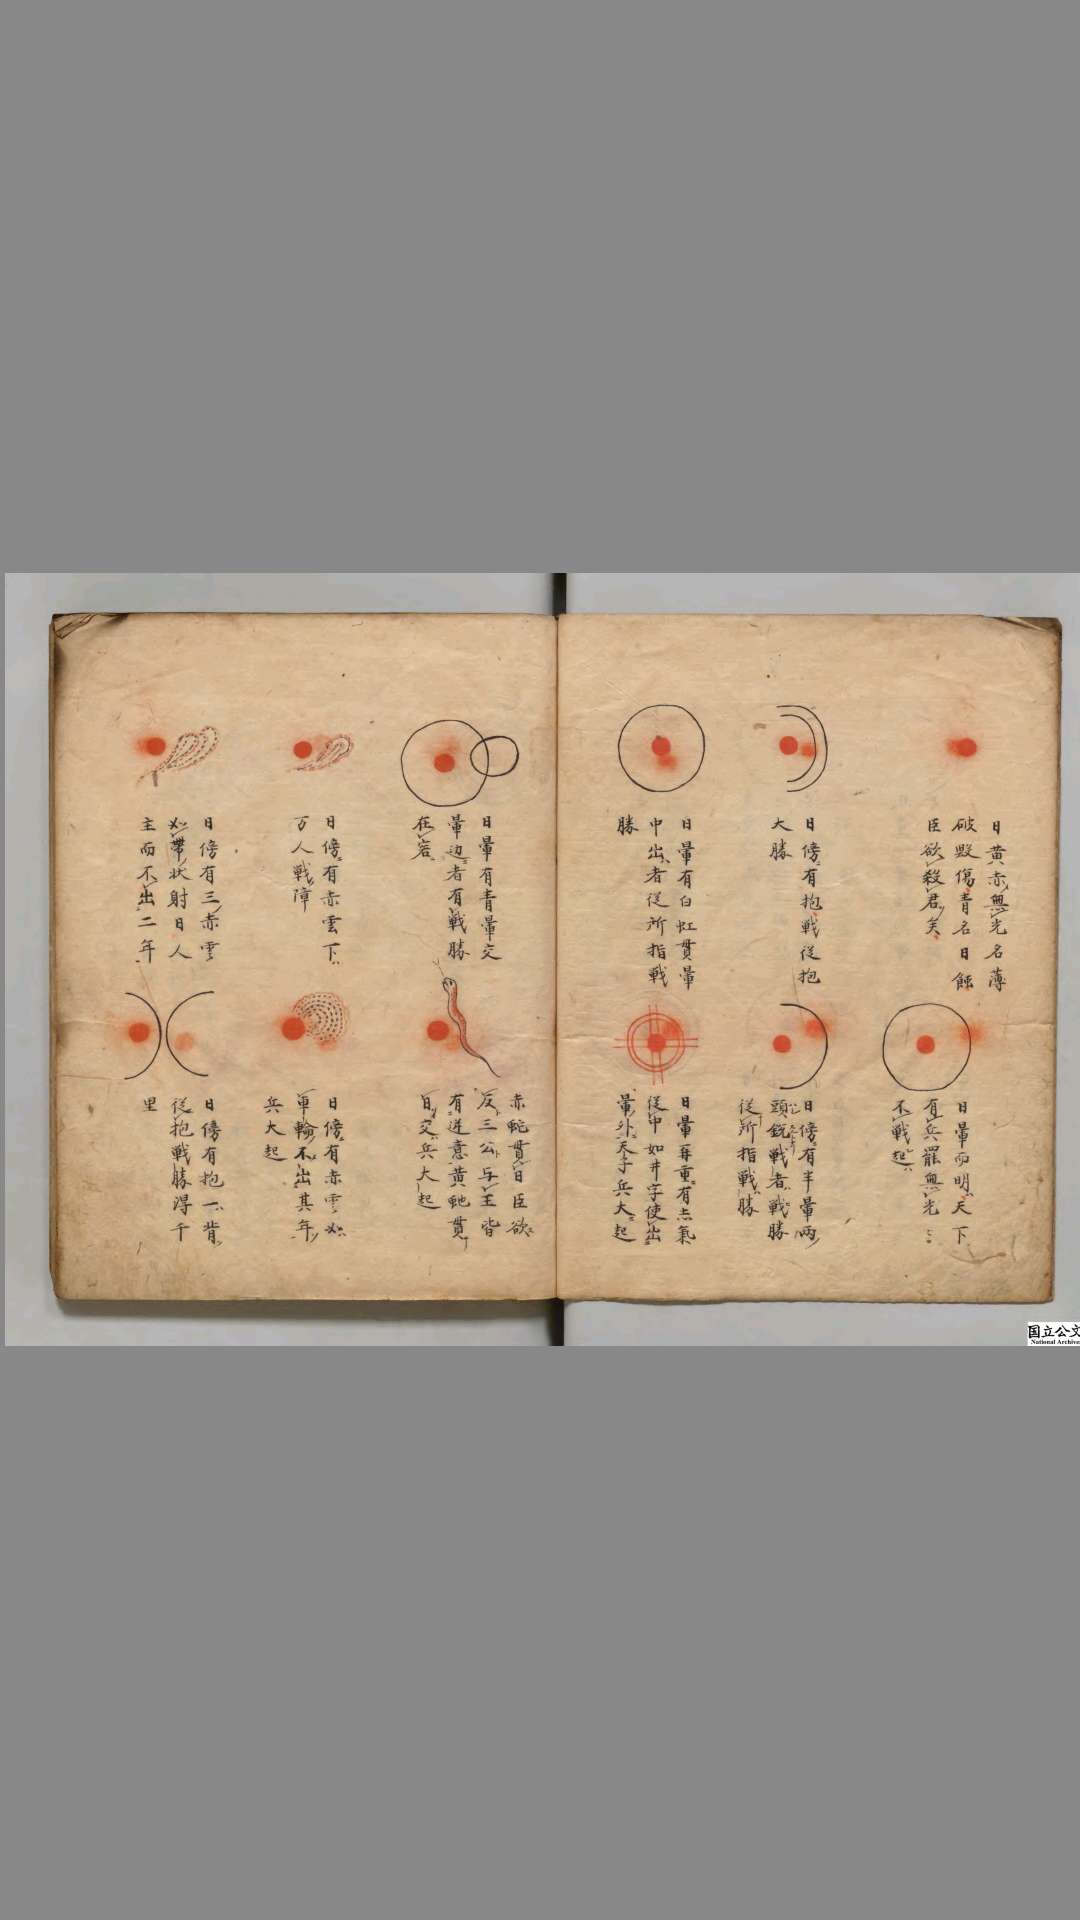 日黄赤無光名薄
破毀傷青名日蝕
臣欲殺君矣
日傍有抱戦従抱
大勝
日暈有白虹貫暈
中出者従所指戦
勝
日暈而明天下
有兵罷無光
不戦起
日傍有半暈両
頭鋭戦者戦勝
従所指戦勝
日暈再重有赤氣
従中如井字使出
暈外天子兵大起
日暈有青暈交
暈辺者有戦勝
在
日傍有赤雲下
万人戦障
日傍有三赤雲
如帶状射日人
主而不出二年
赤蛇貫日臣欲
反三公与王皆
有逆意黄虵貫
日交兵大起
日傍有赤雲如
車輪不出其年
兵大起
日傍有抱一背
従抱戦勝得千
里
国立公文
National Archive